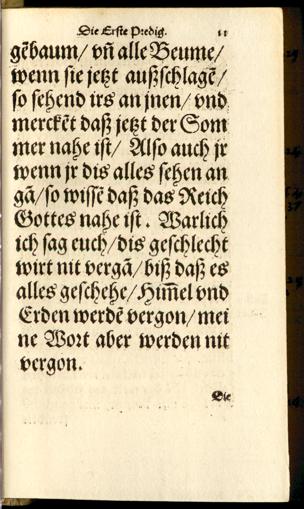 Die Erste Predig. 11
gẽbaum/ vñ alle Beume/
wenn sie jetzt außschlagẽ/
so sehend irs an jnen/ vnd
merckẽt daß jetzt der Som
mer nahe ist/ Also auch jr
wenn jr dis alles sehen an
gã/ so wissẽ daß das Reich
Gottes nahe ist. Warlich
ich sag euch/ dis geschlecht
wirt nit vergã/ biß daß es
alles geschehe/ Him̃el vnd
Erden werdẽ vergon/ mei
ne Wort aber werden nit
vergon.
Die